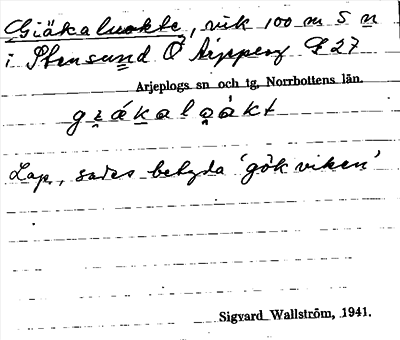 Giäkaluokte, vik 100 m S n
i Stensund Ö Arjeplog G 27
Arjeplogs sn och tg, Norrbottens län.
g i ä k a l u̯ å k t
Lap., sades betyda 'gökviken'
Sigvard Wallström, 1941.